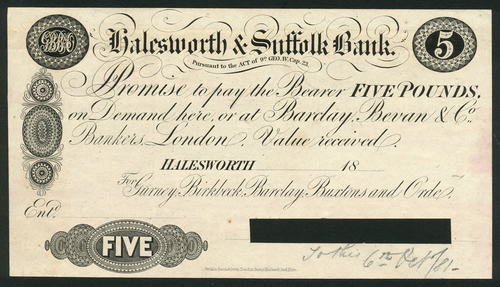 Halesworth & Suffolk Bank.
5
Pursuant to the ACT of 9th GEO. IV. Cap. 23.
Promise to pay the Bearer FIVE POUNDS,
on Demand here, or at Barclay, Bevan & Co.
Bankers, London. Value received.
HALESWORTH 18
For Gurney, Birkbeck, Barclay, Buxtons and Orde.
Entd.
FIVE
6th Octr/81-